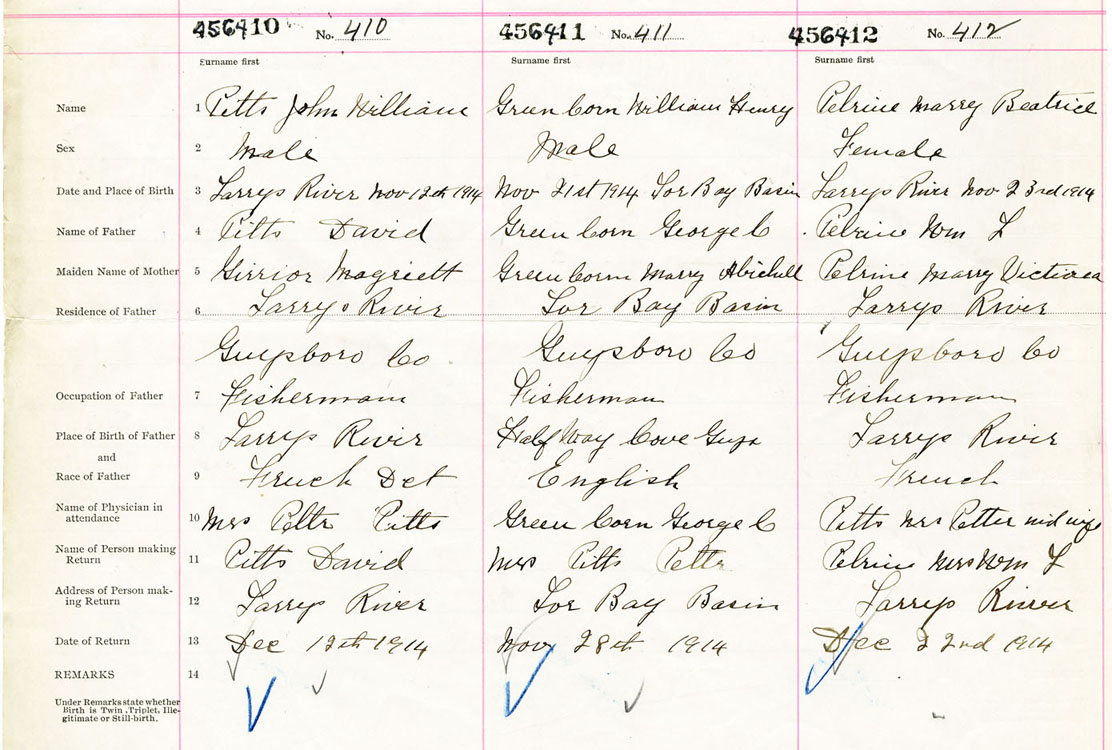 456410 No. 410 456411 No. 411 456412 No. 412
Surname first Surname first Surname first
Name 1 Pitts John William Green Corn William Henry Pelrine Marry Beatrice
Sex 2 Male Male Female
Date and Place of Birth 3 Larrys River Nov 12th 1914 Nov 21st 1914 Tor Bay Basin Larrys River Nov 23rd 1914
Name of Father 4 Pitts David Green Corn George C Pelrine Wm L
Maiden Name of Mother 5 Girrior Magriett Green Corn Marry Pelrine Marry Victiorea
Residence of Father 6 Larrys River Tor Bay Basin Larrys River
Guysboro Co Guysboro Co Guysboro Co
Occupation of Father 7 Fishermam Fisherman Fisherman
Place of Birth of Father 8 Larrys River Half Way Cove Guys Larrys River
and
Race of Father 9 French Det English French
Name of Physician in
attendance 10 Mrs Petter Pitts Green Corn George C Pitts Mrs Petter midwife
Name of Person making
Return 11 Pitts David Mrs Pitts Petter Pelrine Mrs Wm L
Address of Person mak-
ing Return 12 Larrys River Tor Bay Basin Larrys River
Date of Return 13 Dec 12th 1914 Nov 28th 1914 Dec 22nd 1914
REMARKS 14
Under Remarks state whether
Birth is Twin, Triplet, Ille-
gitimate or Still-birth.